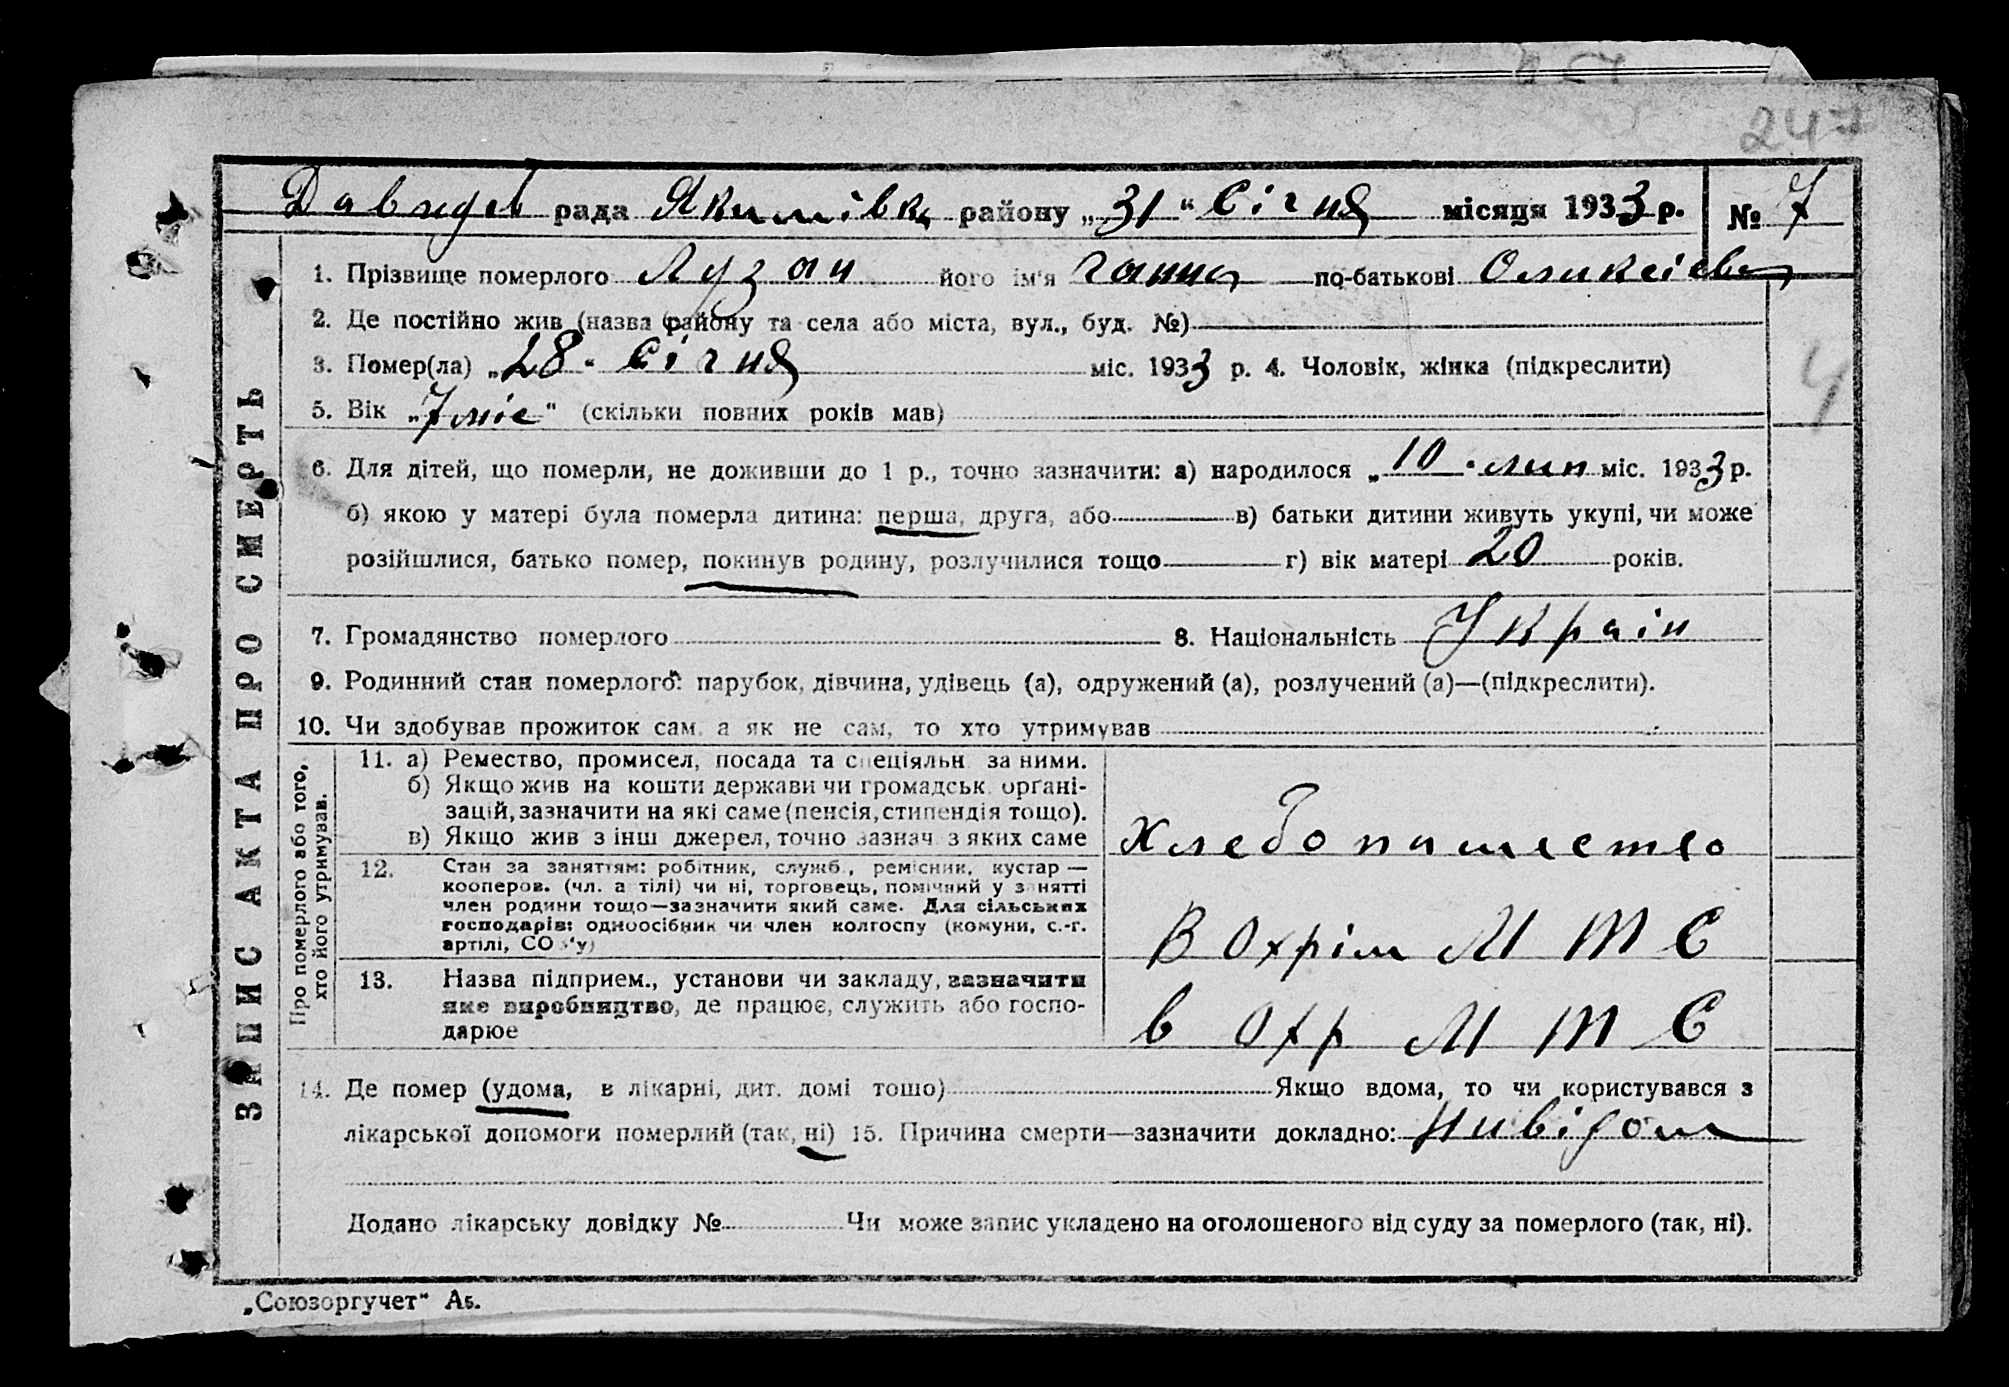 247
Давидів рада Якимівка району „31“ Січня місяця 1933 р. № 7
ЗАПИС АКТА ПРО СМЕРТЬ
1. Прізвище померлого Лузан його ім'я Ганна по-батькові Оликсіевн
2. Де постійно жив (назва району та села або міста, вул., буд. №)
3. Помер(ла) „28“ Січня міс. 1933 р. 4. Чоловік, жінка (підкреслити)
4
5. Вік „7 міс“ (скільки повних років мав)
6. Для дітей, що померли, не доживши до 1 р., точно зазначити: а) народилося „10“ лип міс. 1933 р.
б) якою у матері була померла дитина: перша, друга, або в) батьки дитини живуть укупі, чи може
розійшлися, батько помер, покинув родину, розлучилися тощо г) вік матері 20 років.
7. Громадянство померлого 8. Національність Украін
9. Родинний стан померлого: парубок, дівчина, удівець (а), одружений (а), розлучений (а)—(підкреслити).
10. Чи здобував прожиток сам, а як не сам, то хто утримував
Про померлого або того,
хто його утримував.
11. а) Ремество, промисел, посада та спеціяльн. за ними.
б) Якщо жив на кошти держави чи громадськ. органі-
зацій, зазначити на які саме (пенсія, стипендія тощо).
в) Якщо жив з інш джерел, точно зазнач. з яких саме
Хлебопашество
12. Стан за заняттям: робітник, служб., ремісник, кустар —
кооперов. (чл. артілі) чи ні, торговець, помічний у занятті
член родини тощо—зазначити який саме. Для сільських
господарів: одноосібник чи член колгоспу (комуни, с.-г.
артілі, СОЗ'у)
В Охрім М Т С
13. Назва підприєм., установи чи закладу, зазначити
яке виробництво, де працює, служить або госпо-
дарює
в Охр М Т С
14. Де помер (удома, в лікарні, дит. домі тощо) Якщо вдома, то чи користувався з
лікарської допомоги померлий (так, ні) 15. Причина смерти—зазначити докладно: Нивідом
Додано лікарську довідку № Чи може запис укладено на оголошеного від суду за померлого (так, ні).
„Союзоргучет“ Аб.